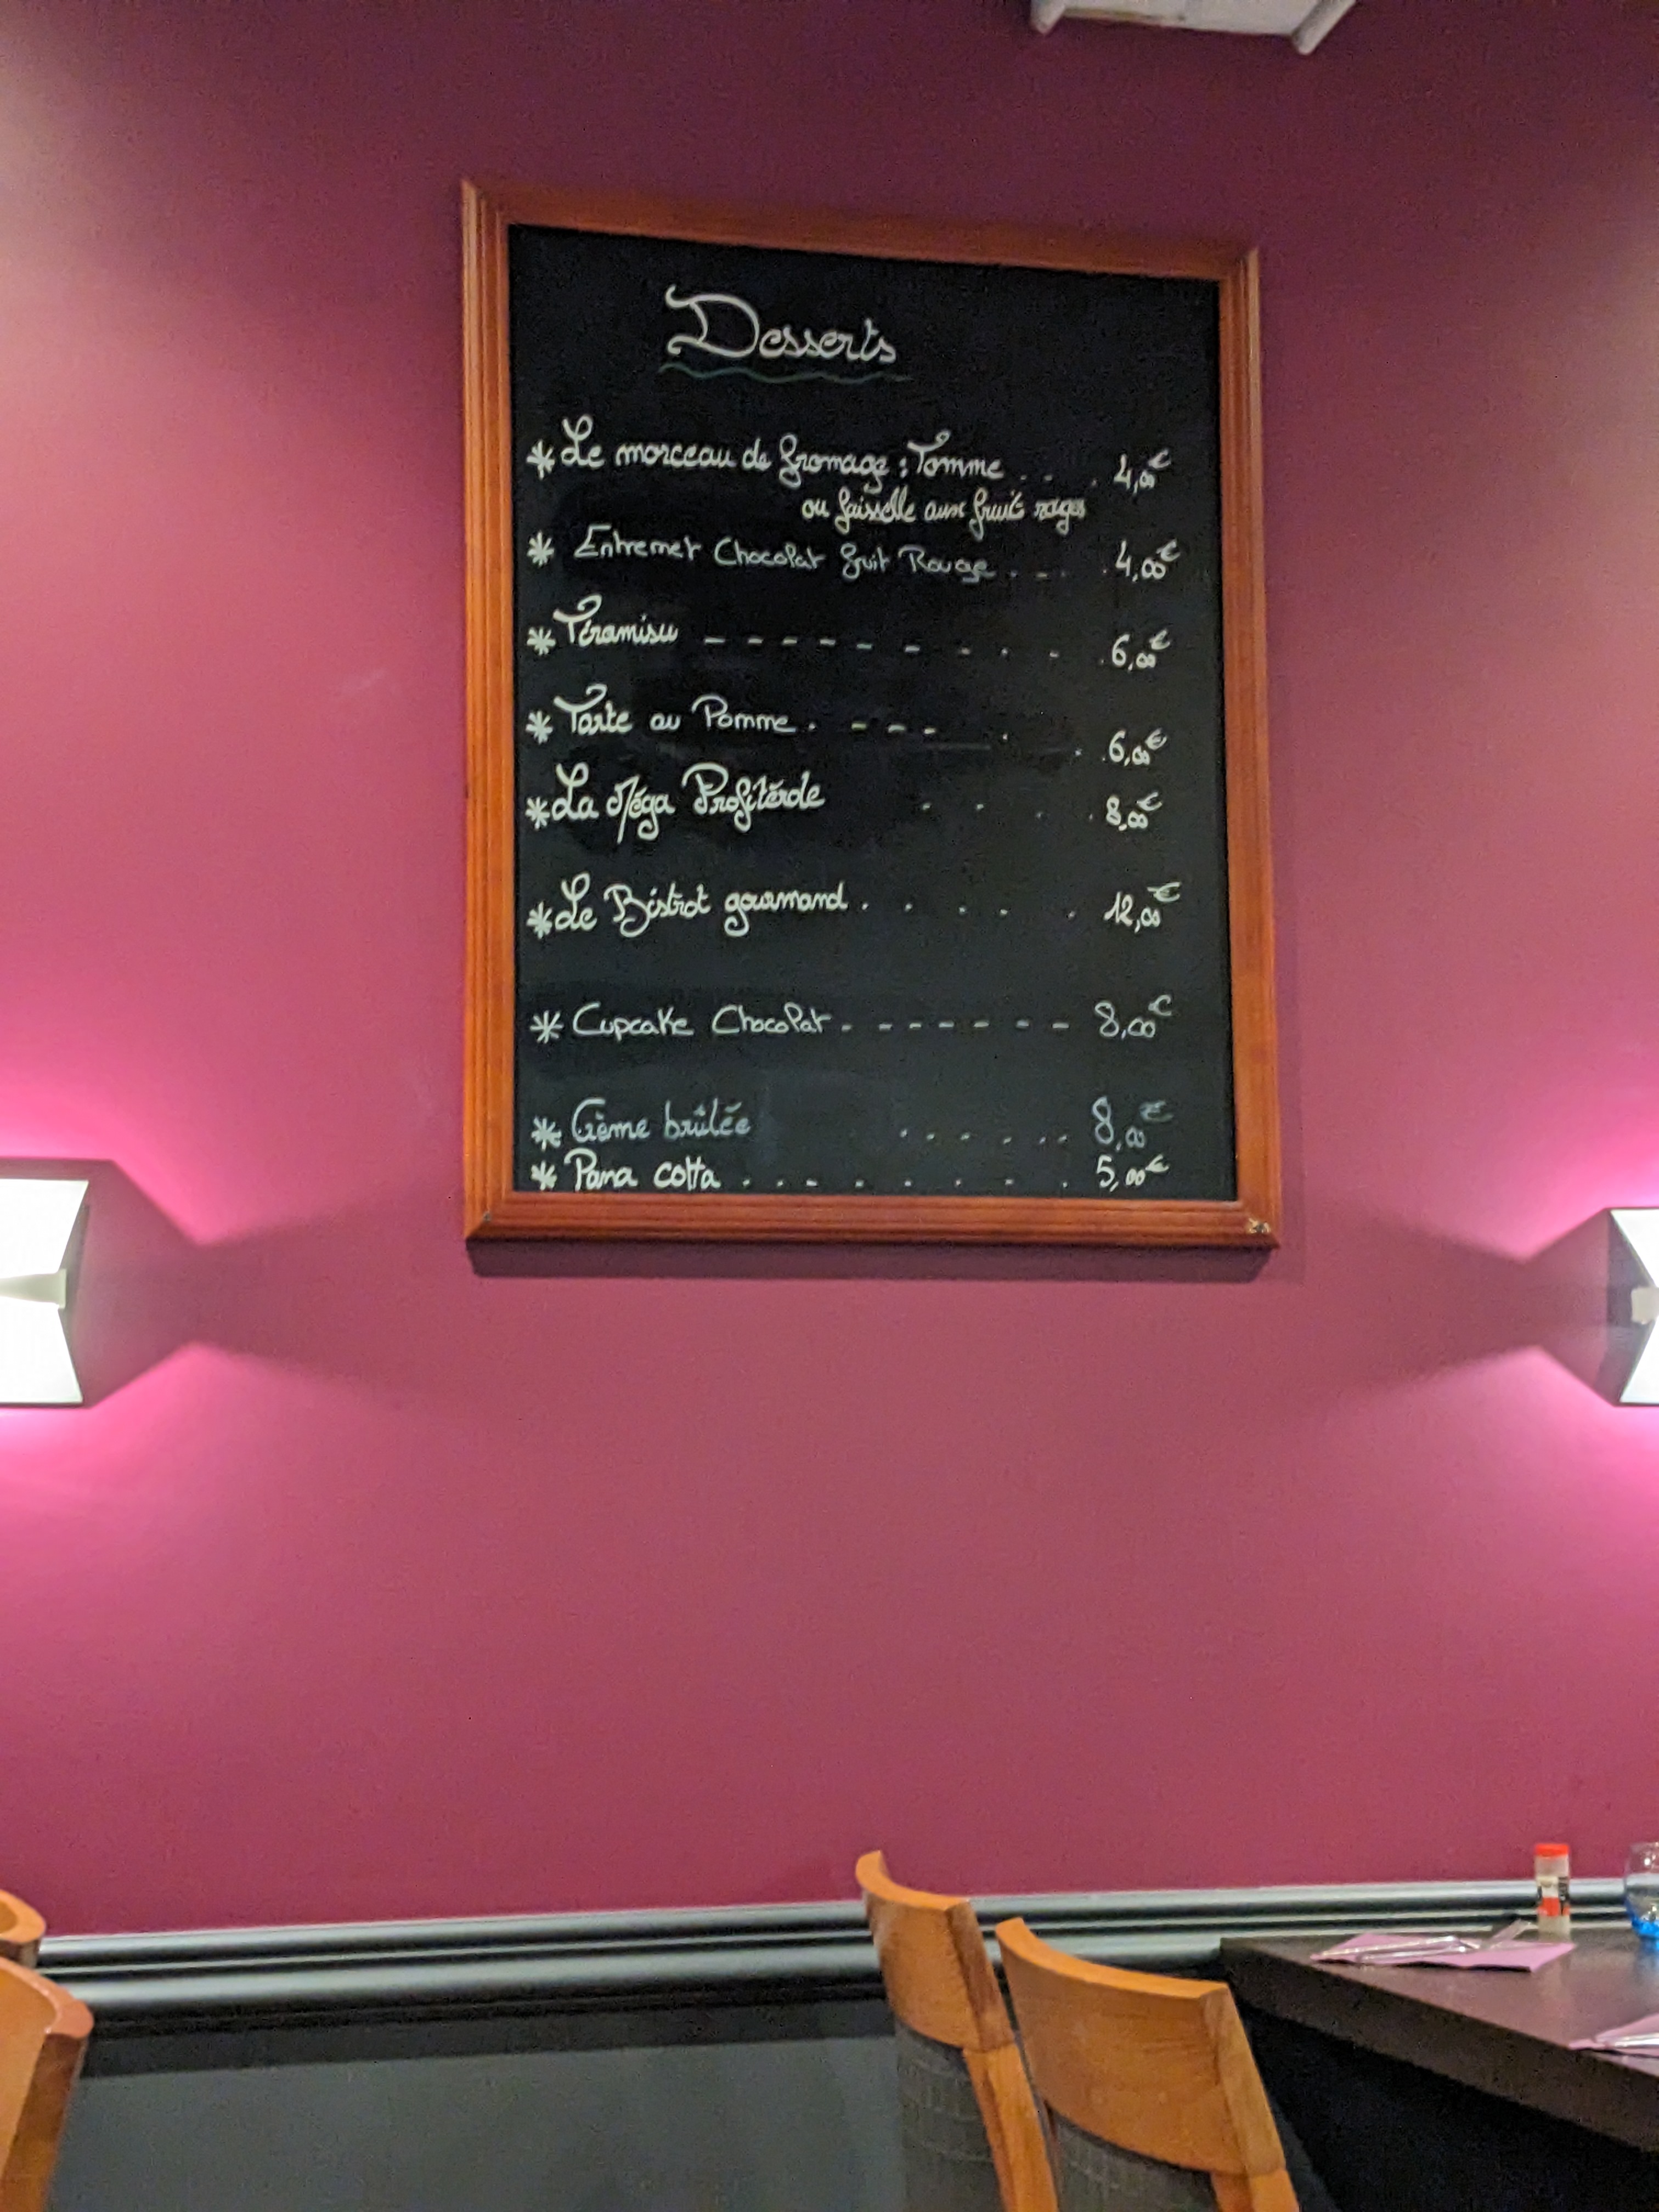 Desserts
* Le morceau de fromage : Tomme . . . 4,00€
ou faisselle aux fruit rouges
* Entremet Chocolat fruit Rouge . - . . 4,00€
* Tiramisu - - - - - - - . - . 6,00€
* Tarte au Pomme . - - - . . . 6,00€
* La Méga Profitérole . . . . 8,00€
* Le Bistrot gourmand . . . . . 12,00€
* Cupcake Chocolat - - - - - - - 8,00€
* Crème brûlée . . . . . . 8,00€
* Pana cotta . . . . . . . . 5,00€